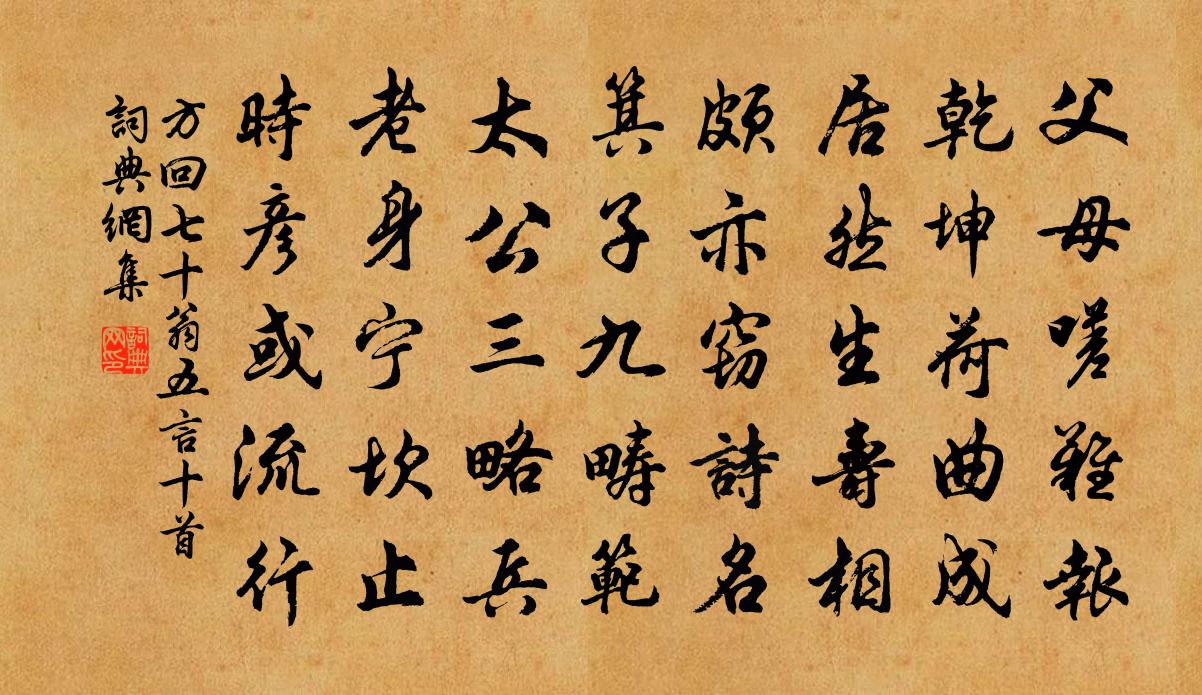 父母嗟難報
乾坤荷曲成
居然生壽相
頗亦竊詩名
箕子九疇範
太公三略兵
老身宁坎止
時彥或流行
方回七十翁五言十首
詞典網集
詞典網印